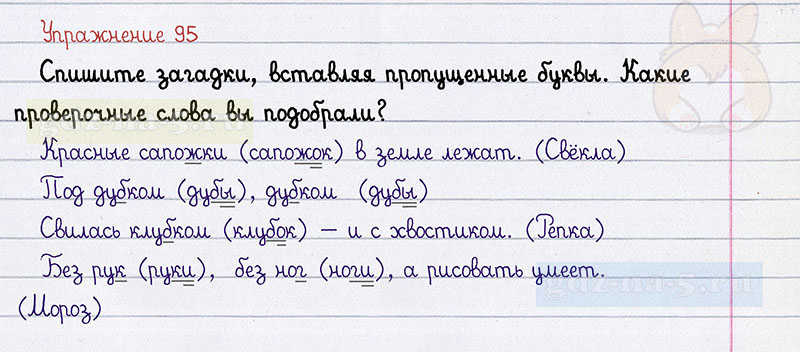 Упражнение 95
Спишите загадки, вставляя пропущенные буквы. Какие
проверочные слова вы подобрали?
Красные сапожки (сапожок) в земле лежат. (Свёкла)
Под дубком (дубы), дубком (дубы)
Свилась клубком (клубок) – и с хвостиком. (Репка)
Без рук (руки), без ног (ноги), а рисовать умеет.
(Мороз)
gdz-na-5.ru
gdz-na-5.ru